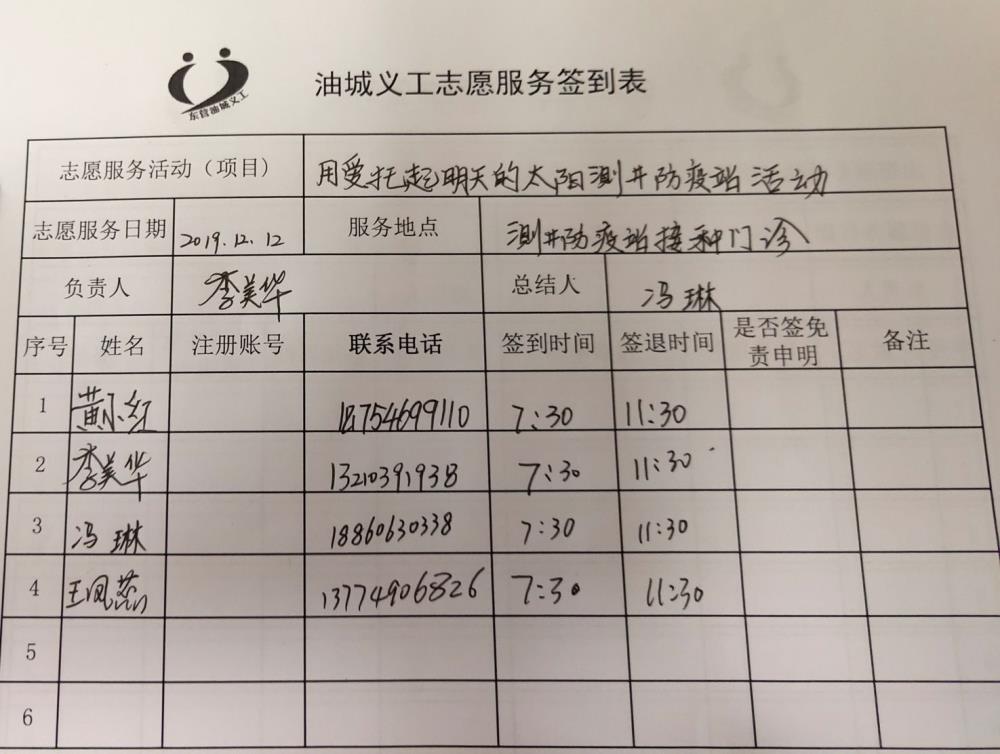 东营油城义工
油城义工志愿服务签到表
志愿服务活动（项目） 用爱托起明天的太阳测井防疫站活动
志愿服务日期 2019.12.12 服务地点 测井防疫站接种门诊
负责人 李美华 总结人 冯琳
序号 姓名 注册账号 联系电话 签到时间 签退时间 是否签免责申明 备注
1 黄小红 18754699110 7:30 11:30
2 李美华 13210391938 7:30 11:30
3 冯琳 18860630338 7:30 11:30
4 王凤燕 13774906826 7:30 11:30
5
6